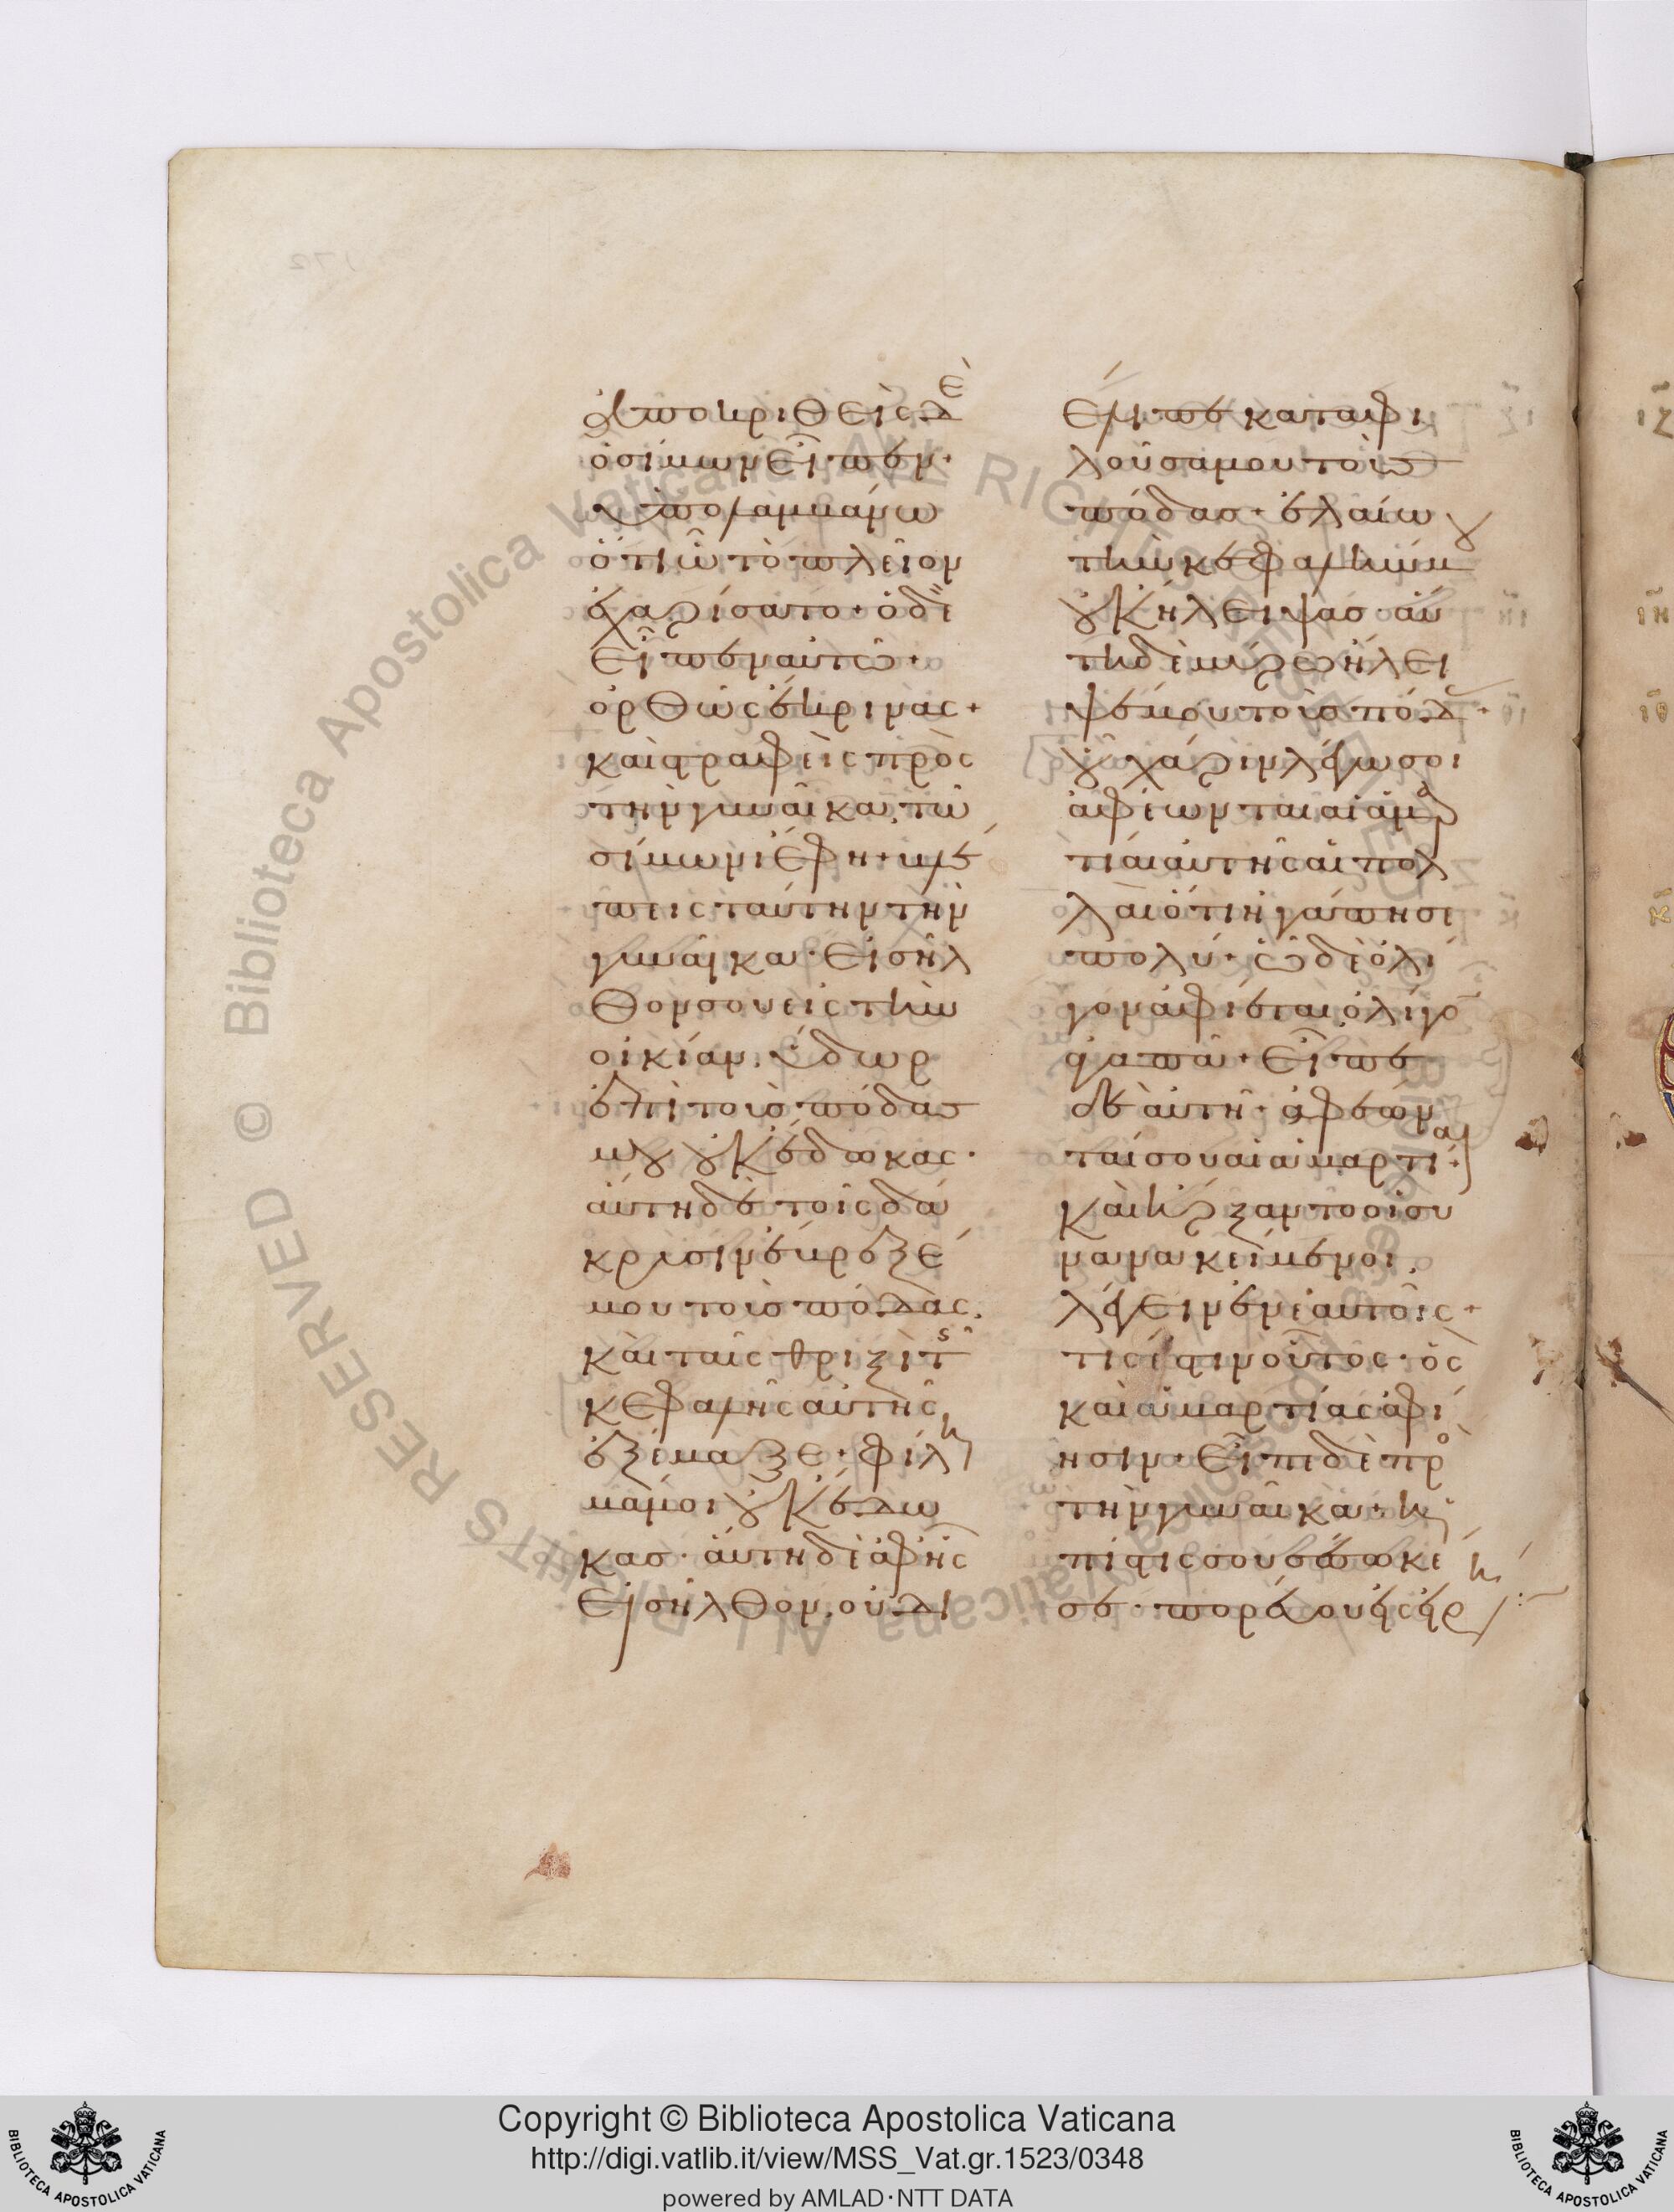 ἀποκριθεὶς δὲ
ὁ σίμων εἶπεν·
ὑπολαμμάνω
ὅτι ὧ τὸ πλεῖον
ἐχαρίσατο· ὁ δὲ
εἶπεν αὐτῶ·
ὀρθῶς ἔκρινας·
καὶ στραφεὶς πρὸς
τὴν γυναῖκα, τῶ
σίμωνι ἔφη· βλέ
πεις ταύτην τὴν
γυναῖκα· εἰσῆλ
θόν σου εἰς τὴν
οἰκίαν. ὕδωρ
ἐπὶ τοὺς πόδας
μου οὐκ ἔδωκας·
αὕτη δὲ τοῖς δά
κρυσιν ἔβρεξέ
μου τοὺς πόδας.
καὶ ταῖς θριξὶ τῆς
κεφαλῆς αὐτῆς
ἐξέμαξε· φίλη
μά μοι οὐκ ἔδω
κας· αὕτη δὲ ἀφ' ἧς
εἰσῆλθον, οὐ δι
έλιπε καταφι
λοῦσά μου τοὺς
πόδας· ἐλαίω
τὴν κεφαλήν μου
οὐκ ἤλειψας· αὕ
τη δὲ μύρω ἤλει
ψέ μου τοὺς πόδας·
οὗ χάριν λέγω σοι
ἀφέωνται αἱ ἁμαρ
τίαι αὐτῆς αἱ πολ
λαὶ ὅτι ἠγάπησε
πολύ· ὧ δὲ ὀλί
γον ἀφίεται, ὀλίγον
ἀγαπᾶ· εἶπε
δὲ αὐτῆ· ἀφέων
ταί σου αἱ ἁμαρτίαι·
καὶ ἤρξαντο οἱ συ
νανακείμενοι,
λέγειν ἐν ἑαυτοῖς·
τίς ἐστιν οὗτος· ὃς
καὶ ἁμαρτίας ἀφί
ησιν· εἶπε δὲ πρὸς
τὴν γυναῖκα· ἡ
πίστις σου σέσωκέ
σε· πορεύου εἰς εἰρήνην:
Copyright © Biblioteca Apostolica Vaticana
http://digi.vatlib.it/view/MSS_Vat.gr.1523/0348
powered by AMLAD·NTT DATA
BIBLIOTECA APOSTOLICA VATICANA
BIBLIOTECA APOSTOLICA VATICANA